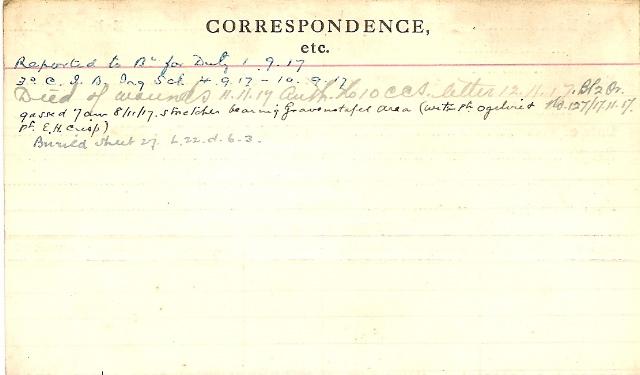 CORRESPONDENCE,
etc.
Reported to Bn for Duty 1.9.17
3rd C. I. B. Tng Sch 4.9.17 – 10.9.17
Died of wounds 11.11.17 Auth. No 10 CCS. letter 12.11.17.
gassed 7am 8/11/17. stretcher bearing Gravenstafel area (with Pt. Ogelvie & No. 127/17.11.17.
Pt. E.H. Crisp)
Buried sheet 27. L.22.d.6.3.